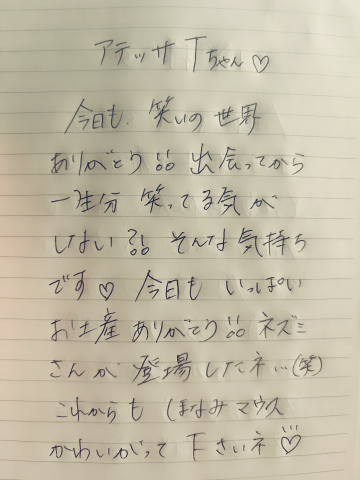 アテッサ Tちゃん♡
今日も、笑いの世界
ありがとう!! 出会ってから
一生分 笑ってる気が
しない?!! そんな気持ち
です♡ 今日も いっぱい
お土産 ありがとう!! ネズミ
さんが 登場したネ…(笑)
これからも ほなみマウス
かわいがって下さいネ♡